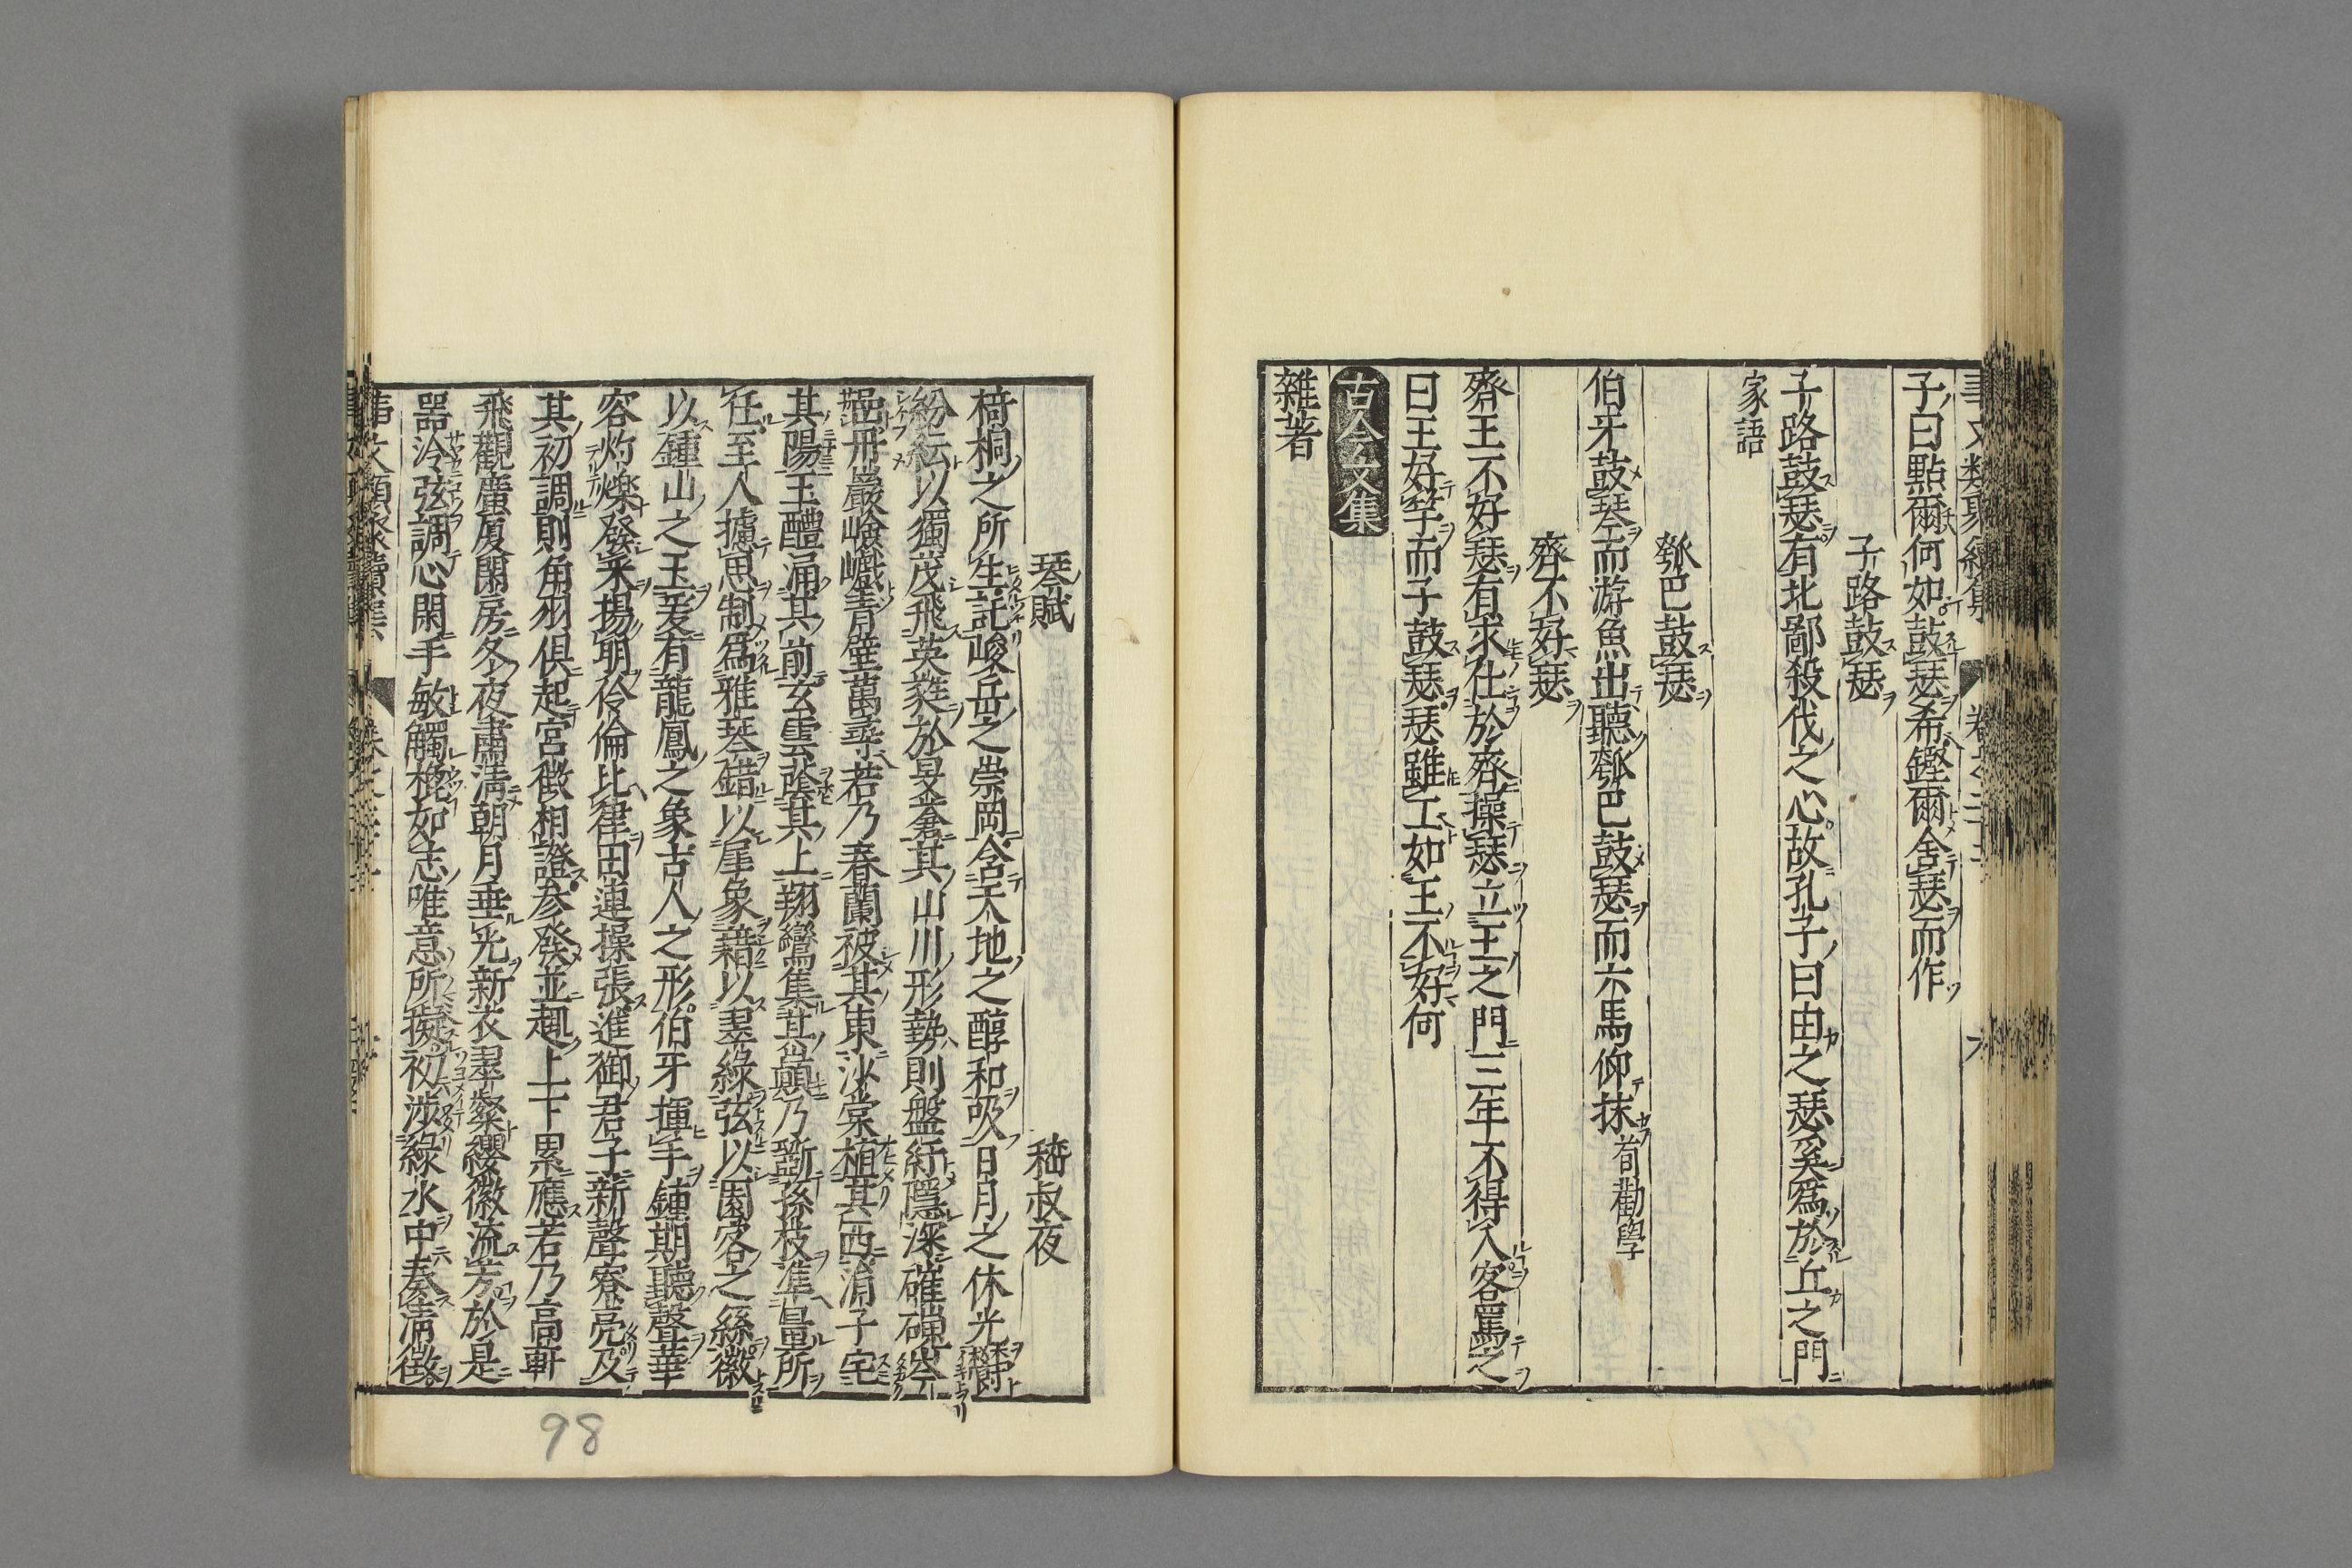 子曰點爾何如鼓瑟希鏗爾舍瑟而作
子路鼓瑟
子路鼓瑟有北鄙殺伐之心故孔子曰由之瑟奚爲於丘之門
家語
瓠巴鼓瑟
伯牙鼓琴而游魚出聽瓠巴鼓瑟而六馬仰抹荀勸學
齊不好瑟
齊王不好瑟有求仕於齊操瑟立王之門三年不得入客罵之
曰王好竽而子鼓瑟瑟雖工如王不好何
古今文集
雜著
琴賦 嵇叔夜
椅桐之所生託峻岳之崇岡含天地之醇和吸日月之休光鬱
紛紜以獨茂飛英蕤於昊蒼其山川形勢則盤紆隱深確碅岑
嵒丹巖嶮巇青壁萬尋若乃春蘭被其東沙棠植其西涓子宅
其陽玉醴涌其前玄雲蔭其上翔鸞集其巔乃斲孫枝准量所
任至人攄思制爲雅琴錯以犀象藉以翠綠弦以園客之絲徽
以鍾山之玉爰有龍鳳之象古人之形伯牙揮手鍾期聽聲華
容灼爍發采揚明伶倫比律田連操張進御君子新聲寥亮及
其初調則角羽俱起宮徵相證參發並趣上下累應若乃高軒
飛觀廣厦閑房冬夜肅清朝月垂光新衣翠粲纓徽流芳於是
器冷弦調心閑手敏觸㧙如志唯意所擬初涉綠水中奏清徵
98